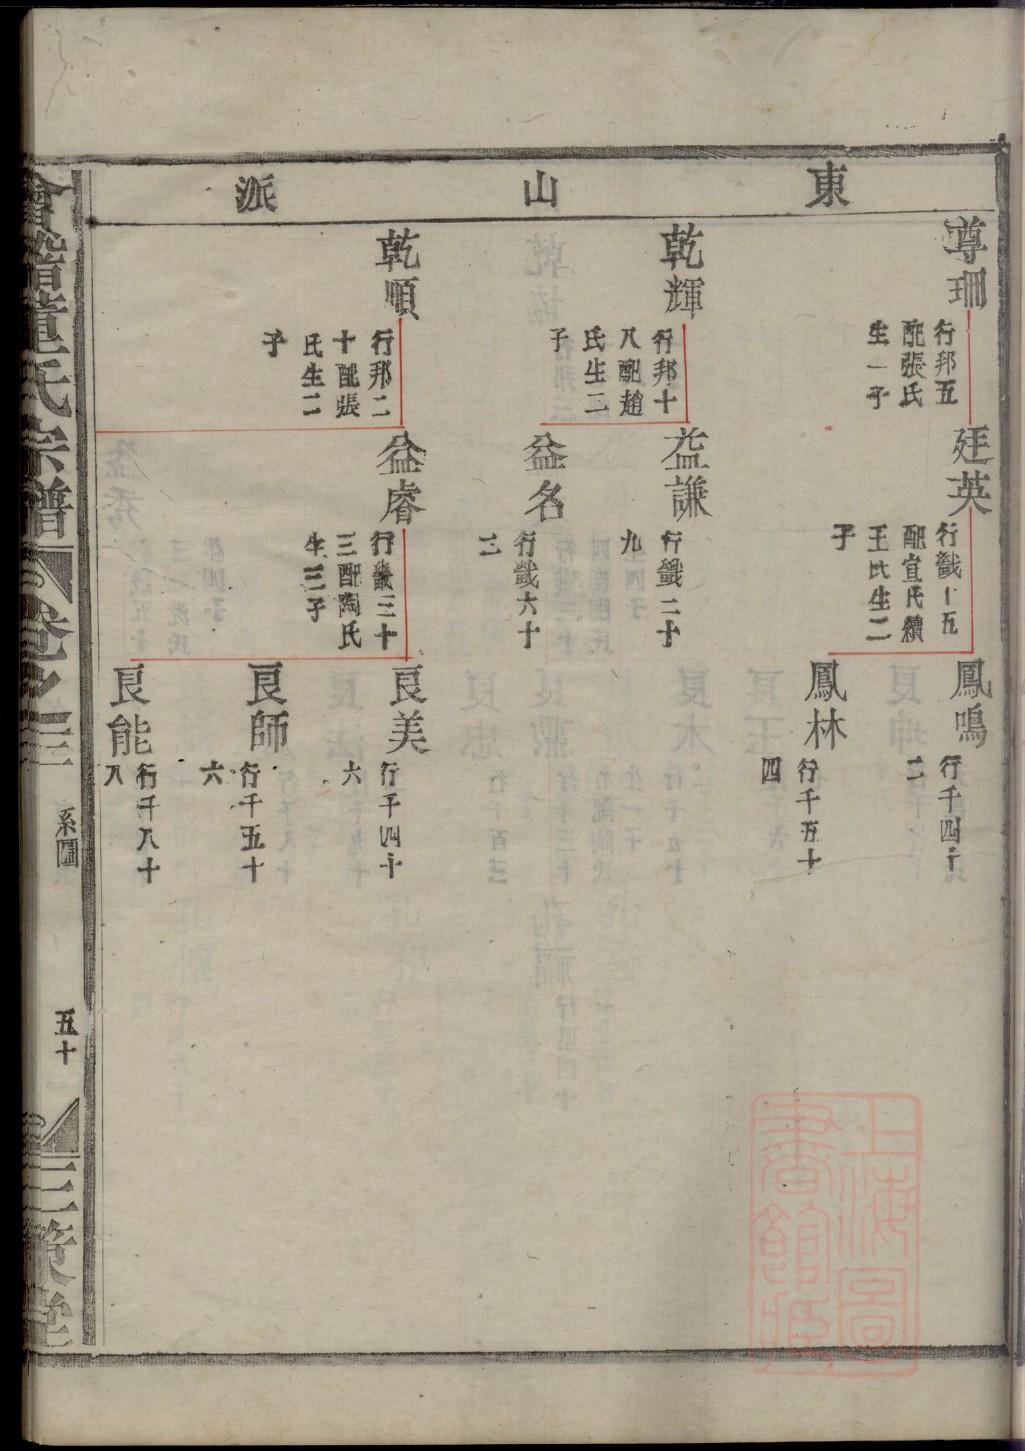 東山派
尊珊
行邦五
配張氏
生一子
廷英
行戩十五
配宣氏續
王氏生二
子
鳳鳴
行千四十
二
鳳林
行千五十
四
乾輝
行邦十
八配趙
氏生二
子
益謙
行戩二十
九
益名
行戩六十
三
乾順
行邦二
十配張
氏生二
子
益睿
行戩三十
三配陶氏
生三子
良美
行千四十
六
良師
行千五十
六
良能
行千八十
八
會稽董氏宗譜
卷之三
系圖
五十
三策堂
上海圖
書館藏